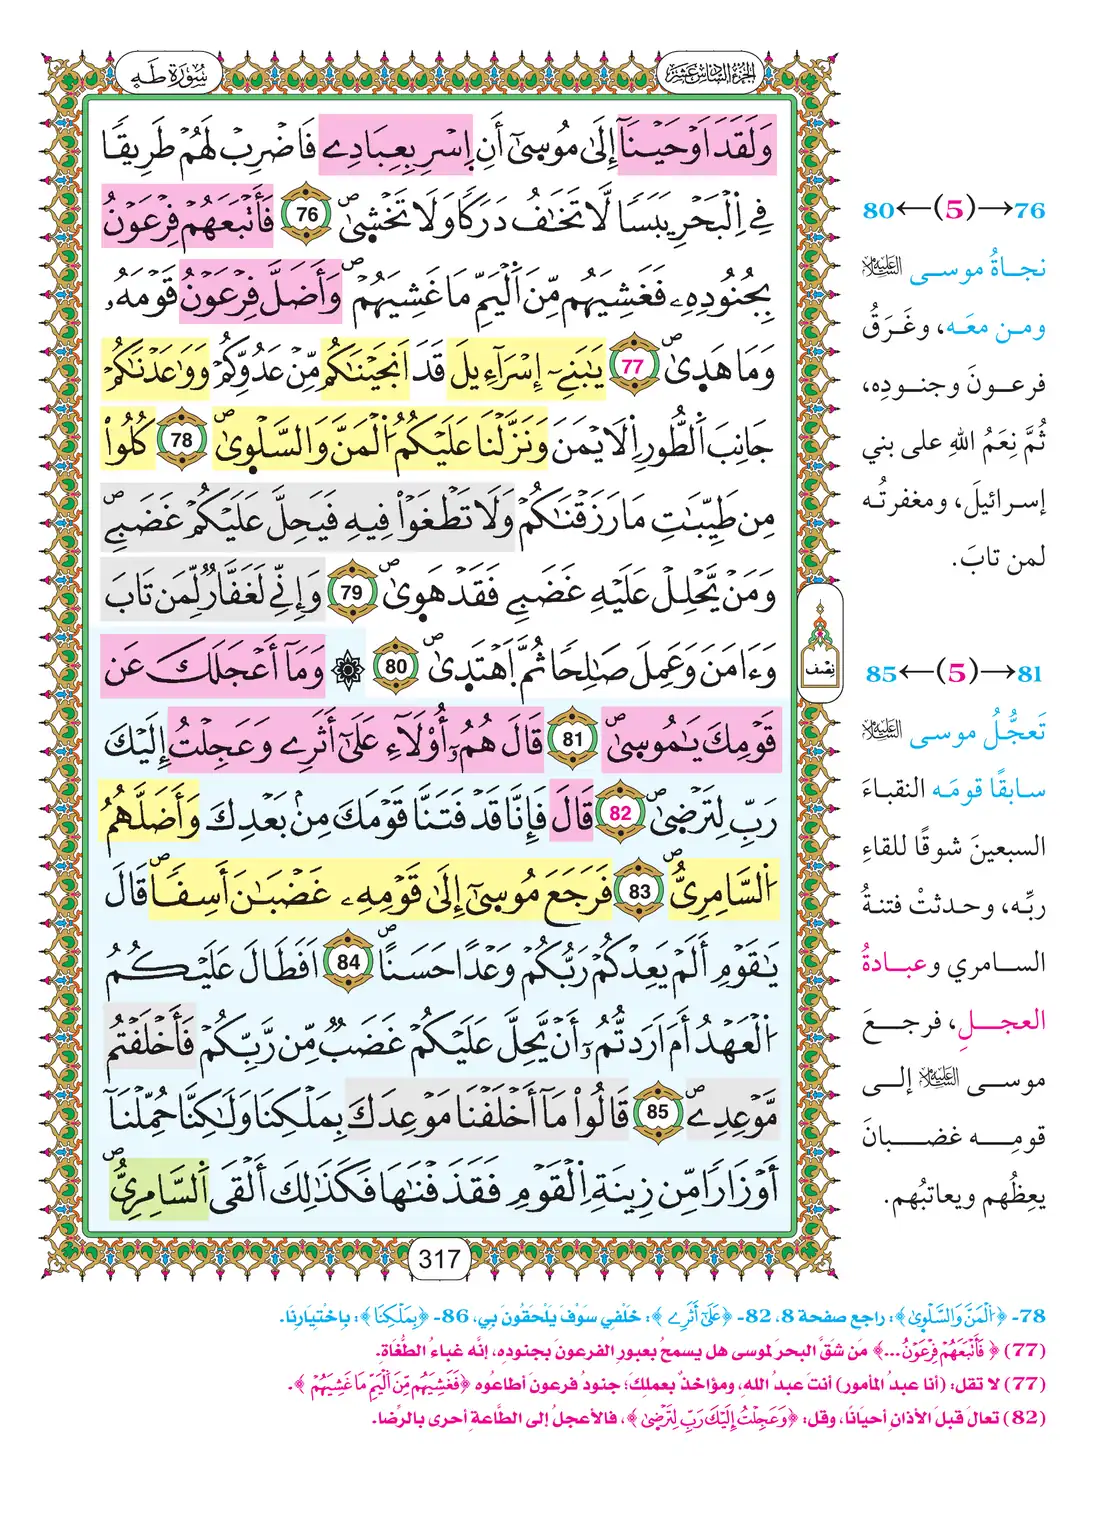 سُورَةُ طَهَ
الجُزْءُ السَّادِسَ عَشَرَ
وَلَقَدَ اَوْحَيْنَآ إِلَىٰ مُوسِىٰٓ أَنِ إِسْرِ بِعِبَادِے فَاضْرِبْ لَهُمْ طَرِيقًا
فِے اِ۬لْبَحْرِ يَبَسًا لَّا تَخَٰفُ دَرَكًا وَلَا تَخْشِىٰۖ 76 فَأَتْبَعَهُمْ فِرْعَوْنُ
بِجُنُودِهِۦ فَغَشِيَهُم مِّنَ اَ۬لْيَمِّ مَا غَشِيَهُمْۖ وَأَضَلَّ فِرْعَوْنُ قَوْمَهُۥ
وَمَا هَدِىٰۖ 77 يَٰبَنِےٓ إِسْرَآءِيلَ قَدَ اَنجَيْنَٰكُم مِّنْ عَدُوِّكُمْ وَوَٰعَدْنَٰكُمْ
جَانِبَ اَ۬لطُّورِ اِ۬لَايْمَنَ وَنَزَّلْنَا عَلَيْكُمُ اُ۬لْمَنَّ وَالسَّلْوِىٰۖ 78 كُلُواْ
مِن طَيِّبَٰتِ مَا رَزَقْنَٰكُمْ وَلَا تَطْغَوْاْ فِيهِ فَيَحِلَّ عَلَيْكُمْ غَضَبِےۖ
وَمَنْ يَّحْلِلْ عَلَيْهِ غَضَبِے فَقَدْ هَوِىٰۖ 79 وَإِنِّے لَغَفَّارٌ لِّمَن تَابَ
وَءَامَنَ وَعَمِلَ صَٰلِحًا ثُمَّ اَ۪هْتَدِىٰۖ 80 ۞ وَمَآ أَعْجَلَكَ عَن
نِصْف
قَوْمِكَ يَٰمُوسِىٰۖ 81 قَالَ هُمُۥٓ أُوْلَآءِ عَلَىٰٓ أَثَرِے وَعَجِلْتُ إِلَيْكَ
رَبِّ لِتَرْضِىٰۖ 82 قَالَ فَإِنَّا قَدْ فَتَنَّا قَوْمَكَ مِنۢ بَعْدِكَ وَأَضَلَّهُمُ
اُ۬لسَّامِرِيُّۖ 83 فَرَجَعَ مُوسِىٰٓ إِلَىٰ قَوْمِهِۦ غَضْبَٰنَ أَسِفًاۖ قَالَ
يَٰقَوْمِ أَلَمْ يَعِدْكُمْ رَبُّكُمْ وَعْدًا حَسَنًاۖ 84 اَفَطَالَ عَلَيْكُمُ
اُ۬لْعَهْدُ أَمَ اَرَدتُّمُۥٓ أَنْ يَّحِلَّ عَلَيْكُمْ غَضَبٌ مِّن رَّبِّكُمْ فَأَخْلَفْتُم
مَّوْعِدِےۖ 85 قَالُواْ مَآ أَخْلَفْنَا مَوْعِدَكَ بِمَلْكِنَا وَلَٰكِنَّا حُمِّلْنَآ
أَوْزَارًا مِّن زِينَةِ اِ۬لْقَوْمِ فَقَذَفْنَٰهَا فَكَذَٰلِكَ أَلْقَى اَ۬لسَّامِرِيُّۖ
317
76→(5)←80
نجاةُ موسى عليه السلام
ومن معَه، وغَرَقُ
فرعونَ وجنودِه،
ثُمَّ نِعَمُ اللهِ على بني
إسرائيلَ، ومغفرتُه
لمن تابَ.
81→(5)←85
تَعجُّلُ موسى عليه السلام
سابقًا قومَه النقباءَ
السبعينَ شوقًا للقاءِ
ربِّه، وحدثتْ فتنةُ
السامري وعبادةُ
العجلِ، فرجعَ
موسى عليه السلام إلى
قومِه غضبانَ
يعِظُهم ويعاتبُهم.
78- ﴿اَ۬لْمَنَّ وَالسَّلْوِىٰ﴾: راجع صفحة 8، 82- ﴿عَلَىٰٓ أَثَرِے﴾: خَلْفِي سَوْفَ يَلْحَقُونَ بِي، 86- ﴿بِمَلْكِنَا﴾: بِاخْتِيَارِنَا.
(77) ﴿فَأَتْبَعَهُمْ فِرْعَوْنُ...﴾ مَن شَقَّ البحرَ لموسى هل يسمحُ بعبورِ الفرعونَ بجنودِه، إنَّه غباءُ الطُّغَاةِ.
(77) لا تقل: (أنا عبدُ المأمورِ) أنتَ عبدُ اللهِ، ومؤاخذٌ بعملِكَ؛ جنودُ فرعون أطاعُوه ﴿فَغَشِيَهُم مِّنَ اَ۬لْيَمِّ مَا غَشِيَهُمْ﴾.
(82) تعالَ قبلَ الأذانِ أحيَانًا، وقل: ﴿وَعَجِلْتُ إِلَيْكَ رَبِّ لِتَرْضِىٰ﴾، فالأعجلُ إلى الطَّاعةِ أحرى بالرِّضا.